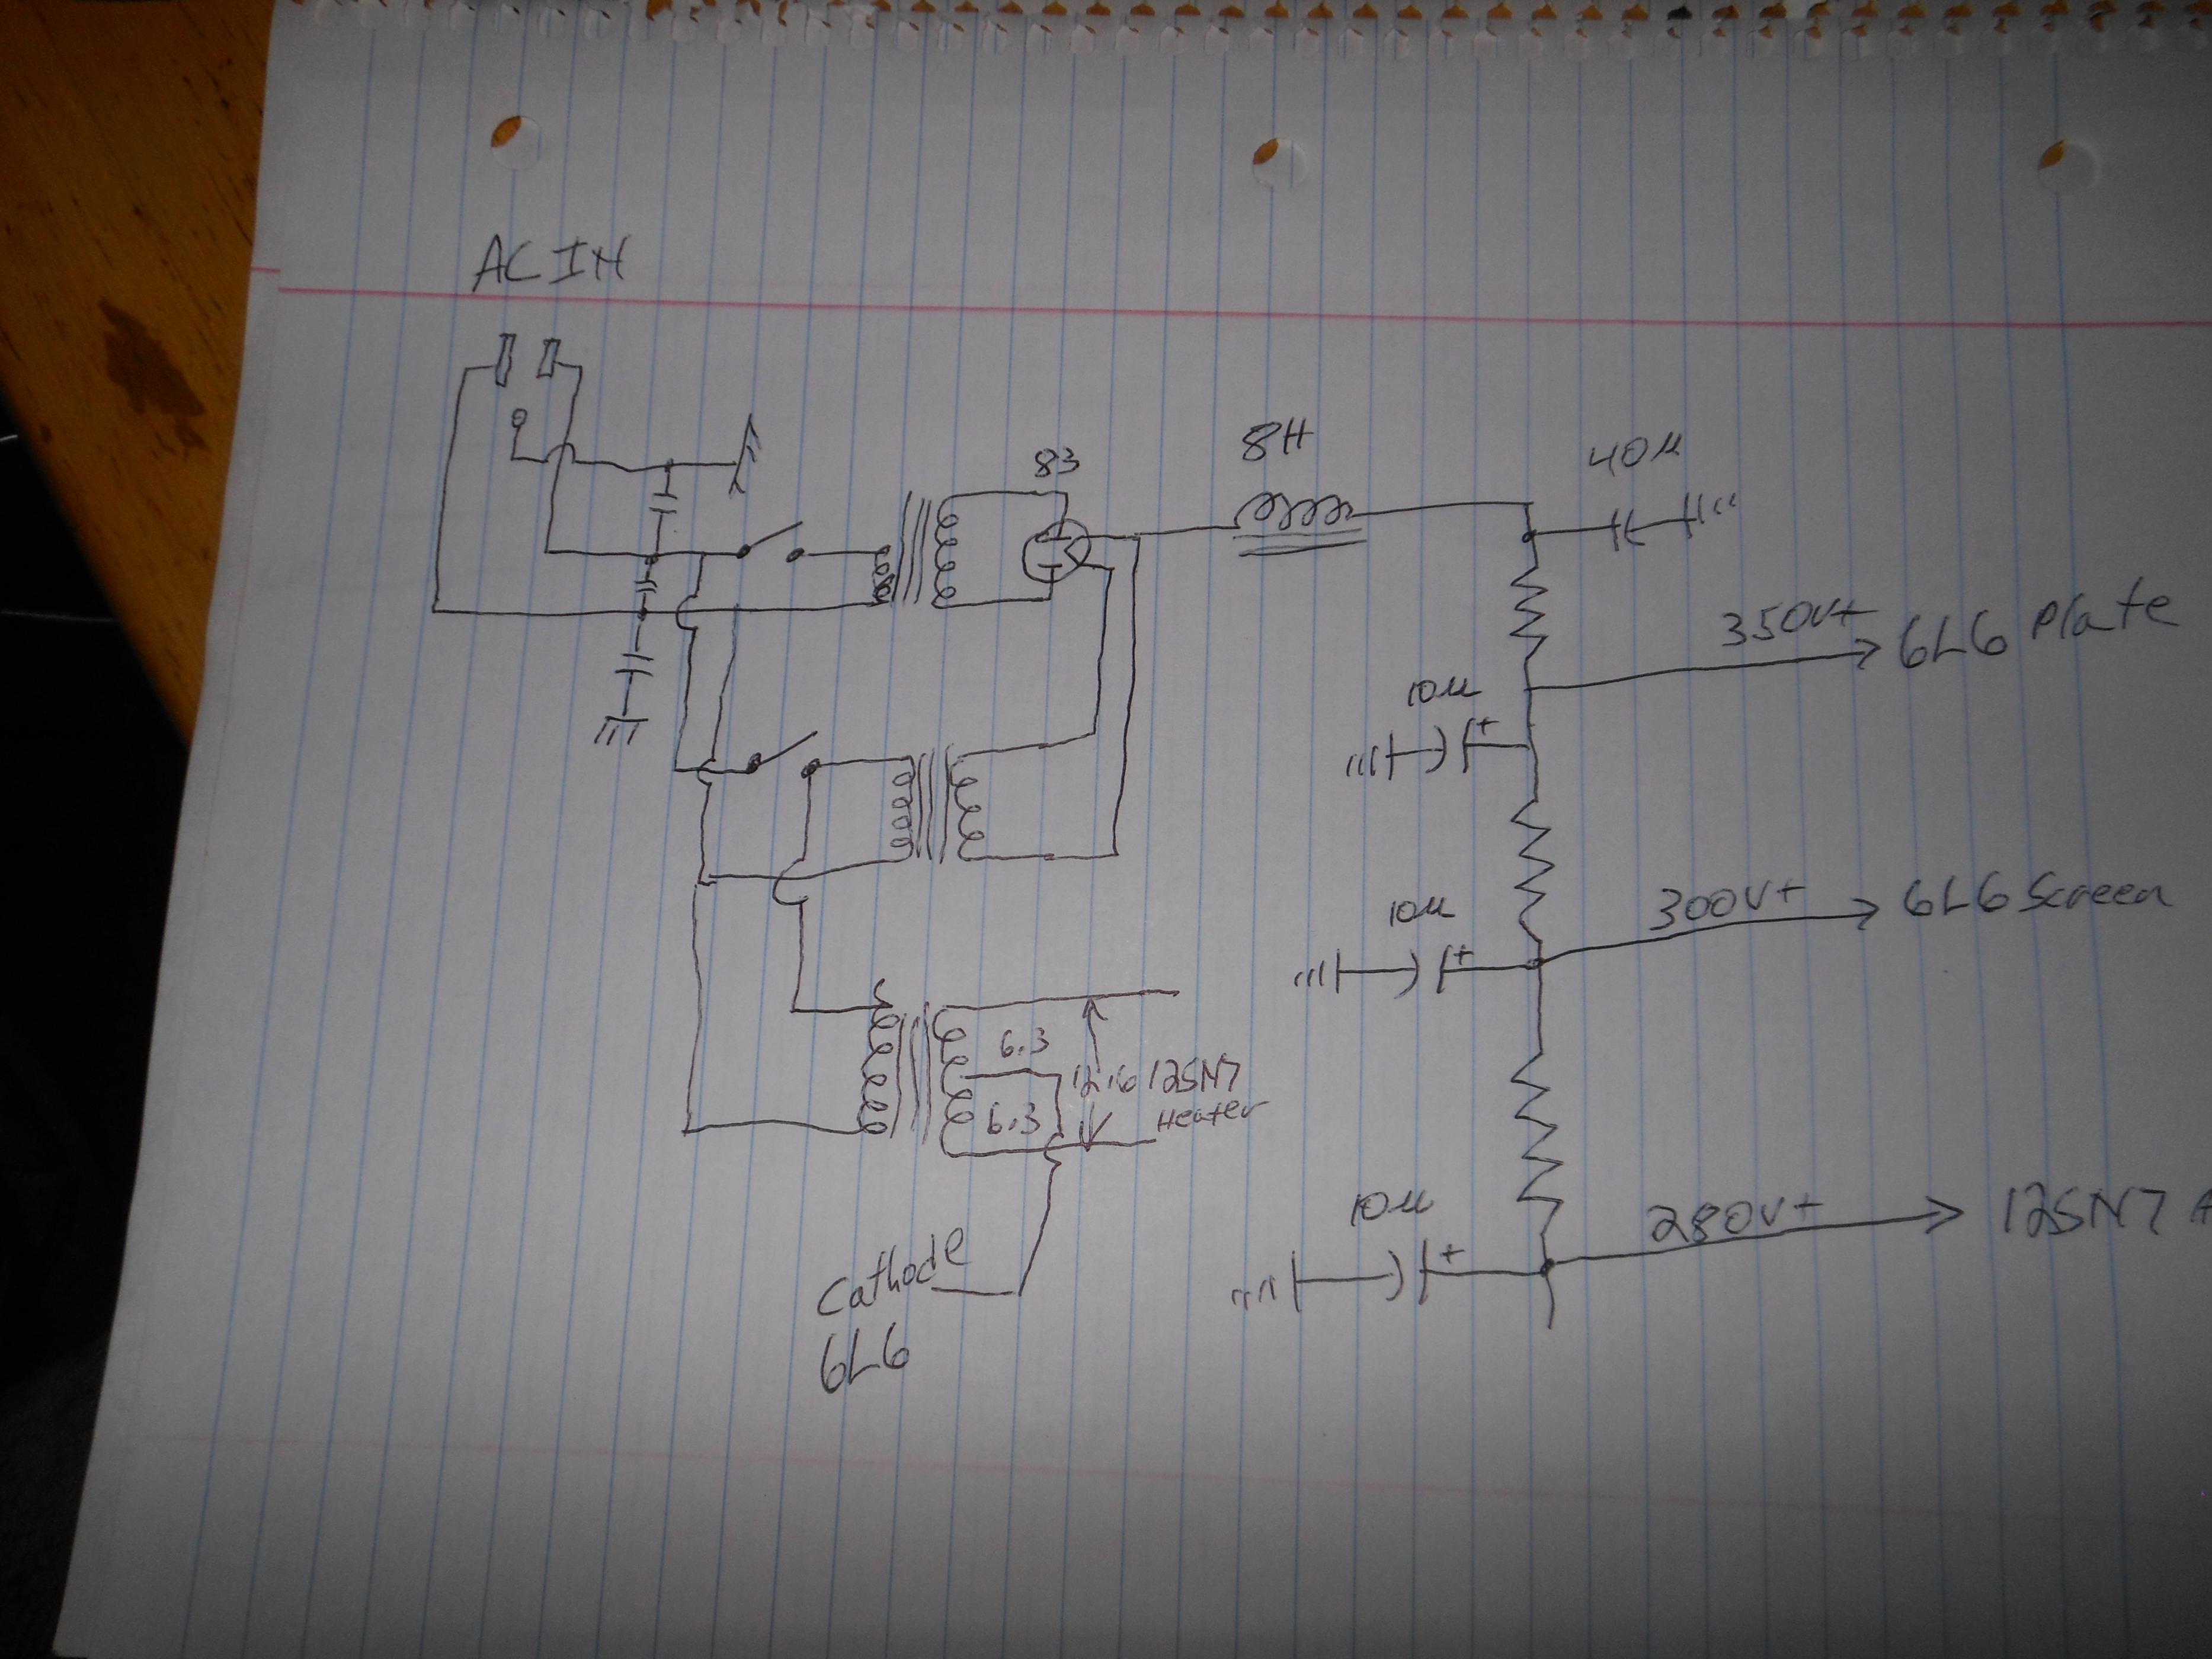 AC IN
83
8H
40µ
350V+
6L6 Plate
10µ
300V+
6L6 Screen
10µ
6.3
12.6 12SN7
6.3
Heater
280V+
12SN7
10µ
Cathode
6L6